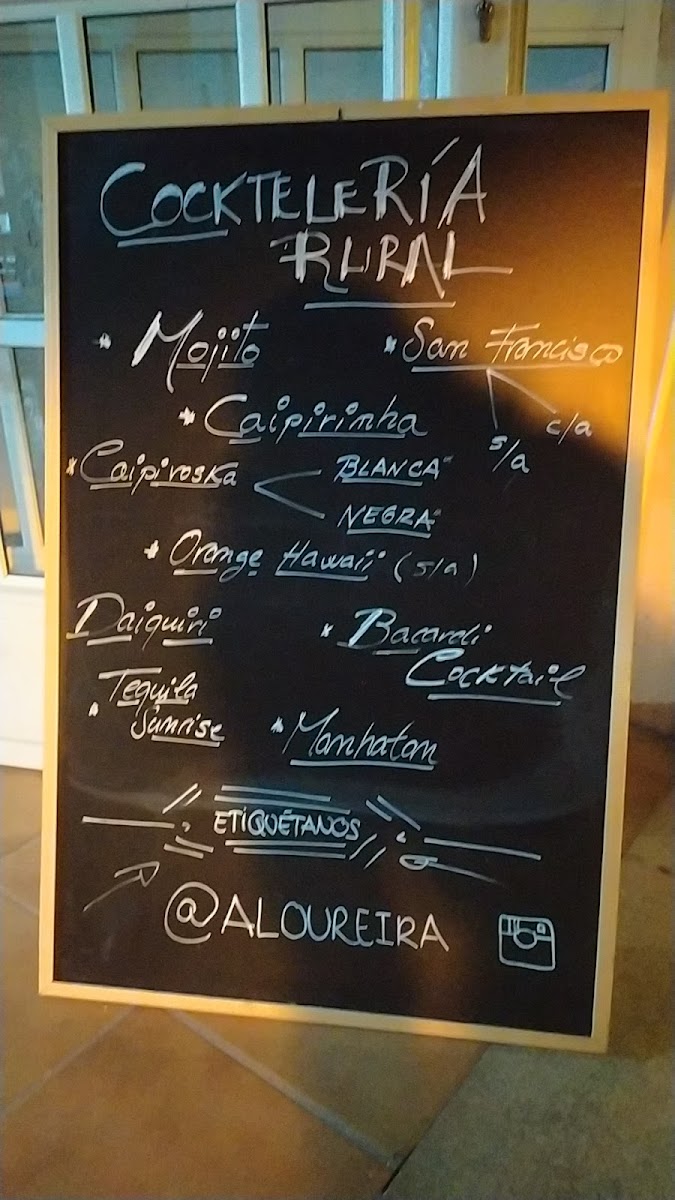 COCKTELERÍA
RURAL
* Mojito
* San Francisco
s/a
c/a
* Caipirinha
* Caipiroska
BLANCA"
NEGRA"
* Orange Hawaii (s/a)
Daiquiri
* Bacardi
Cocktail
* Tequila
Sunrise
* Manhatan
ETIQUÉTANOS
@ALOUREIRA